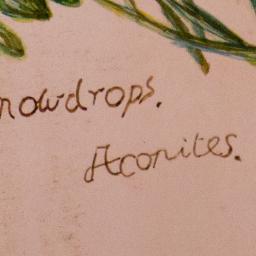 nowdrops.
Aconites.